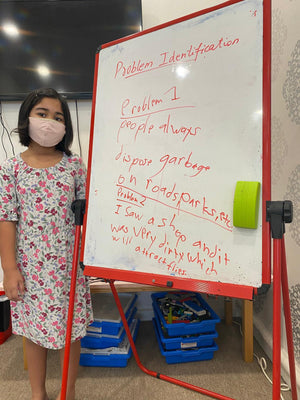 Problem Identification
Problem 1
people always
dispose garbage
on roads, parks, etc
Problem 2
I saw a shop and it
was very dirty which
will attract flies.